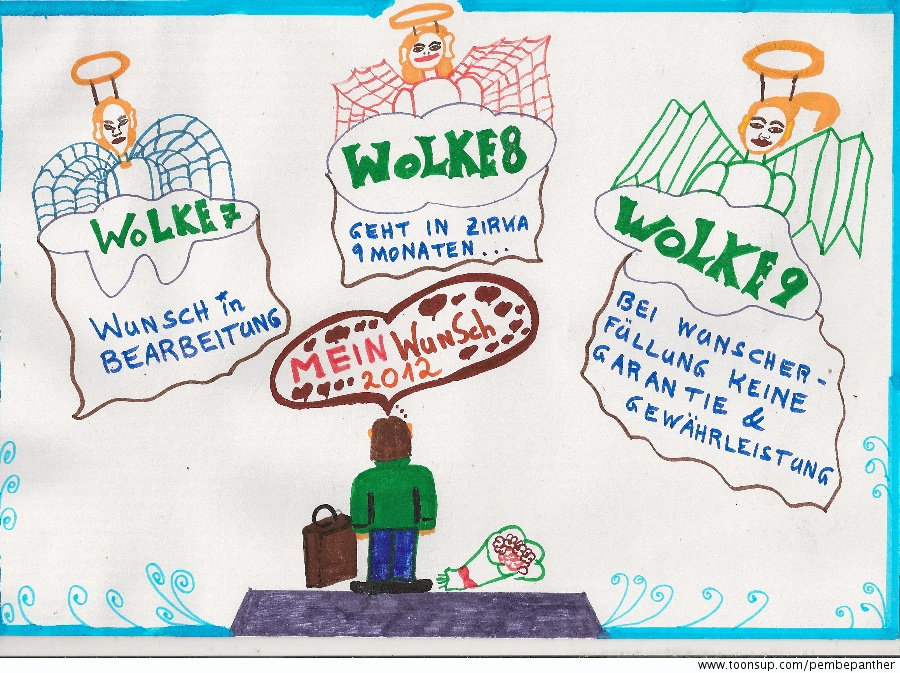 WOLKE 7
WUNSCH in
BEARBEITUNG
WOLKE8
GEHT IN ZIRKA
9 MONATEN...
WOLKE 9
BEI WUNSCHER-
FÜLLUNG KEINE
GARANTIE &
GEWÄHRLEISTUNG
MEIN WUNSCH
2012
www.toonsup.com/pembepanther